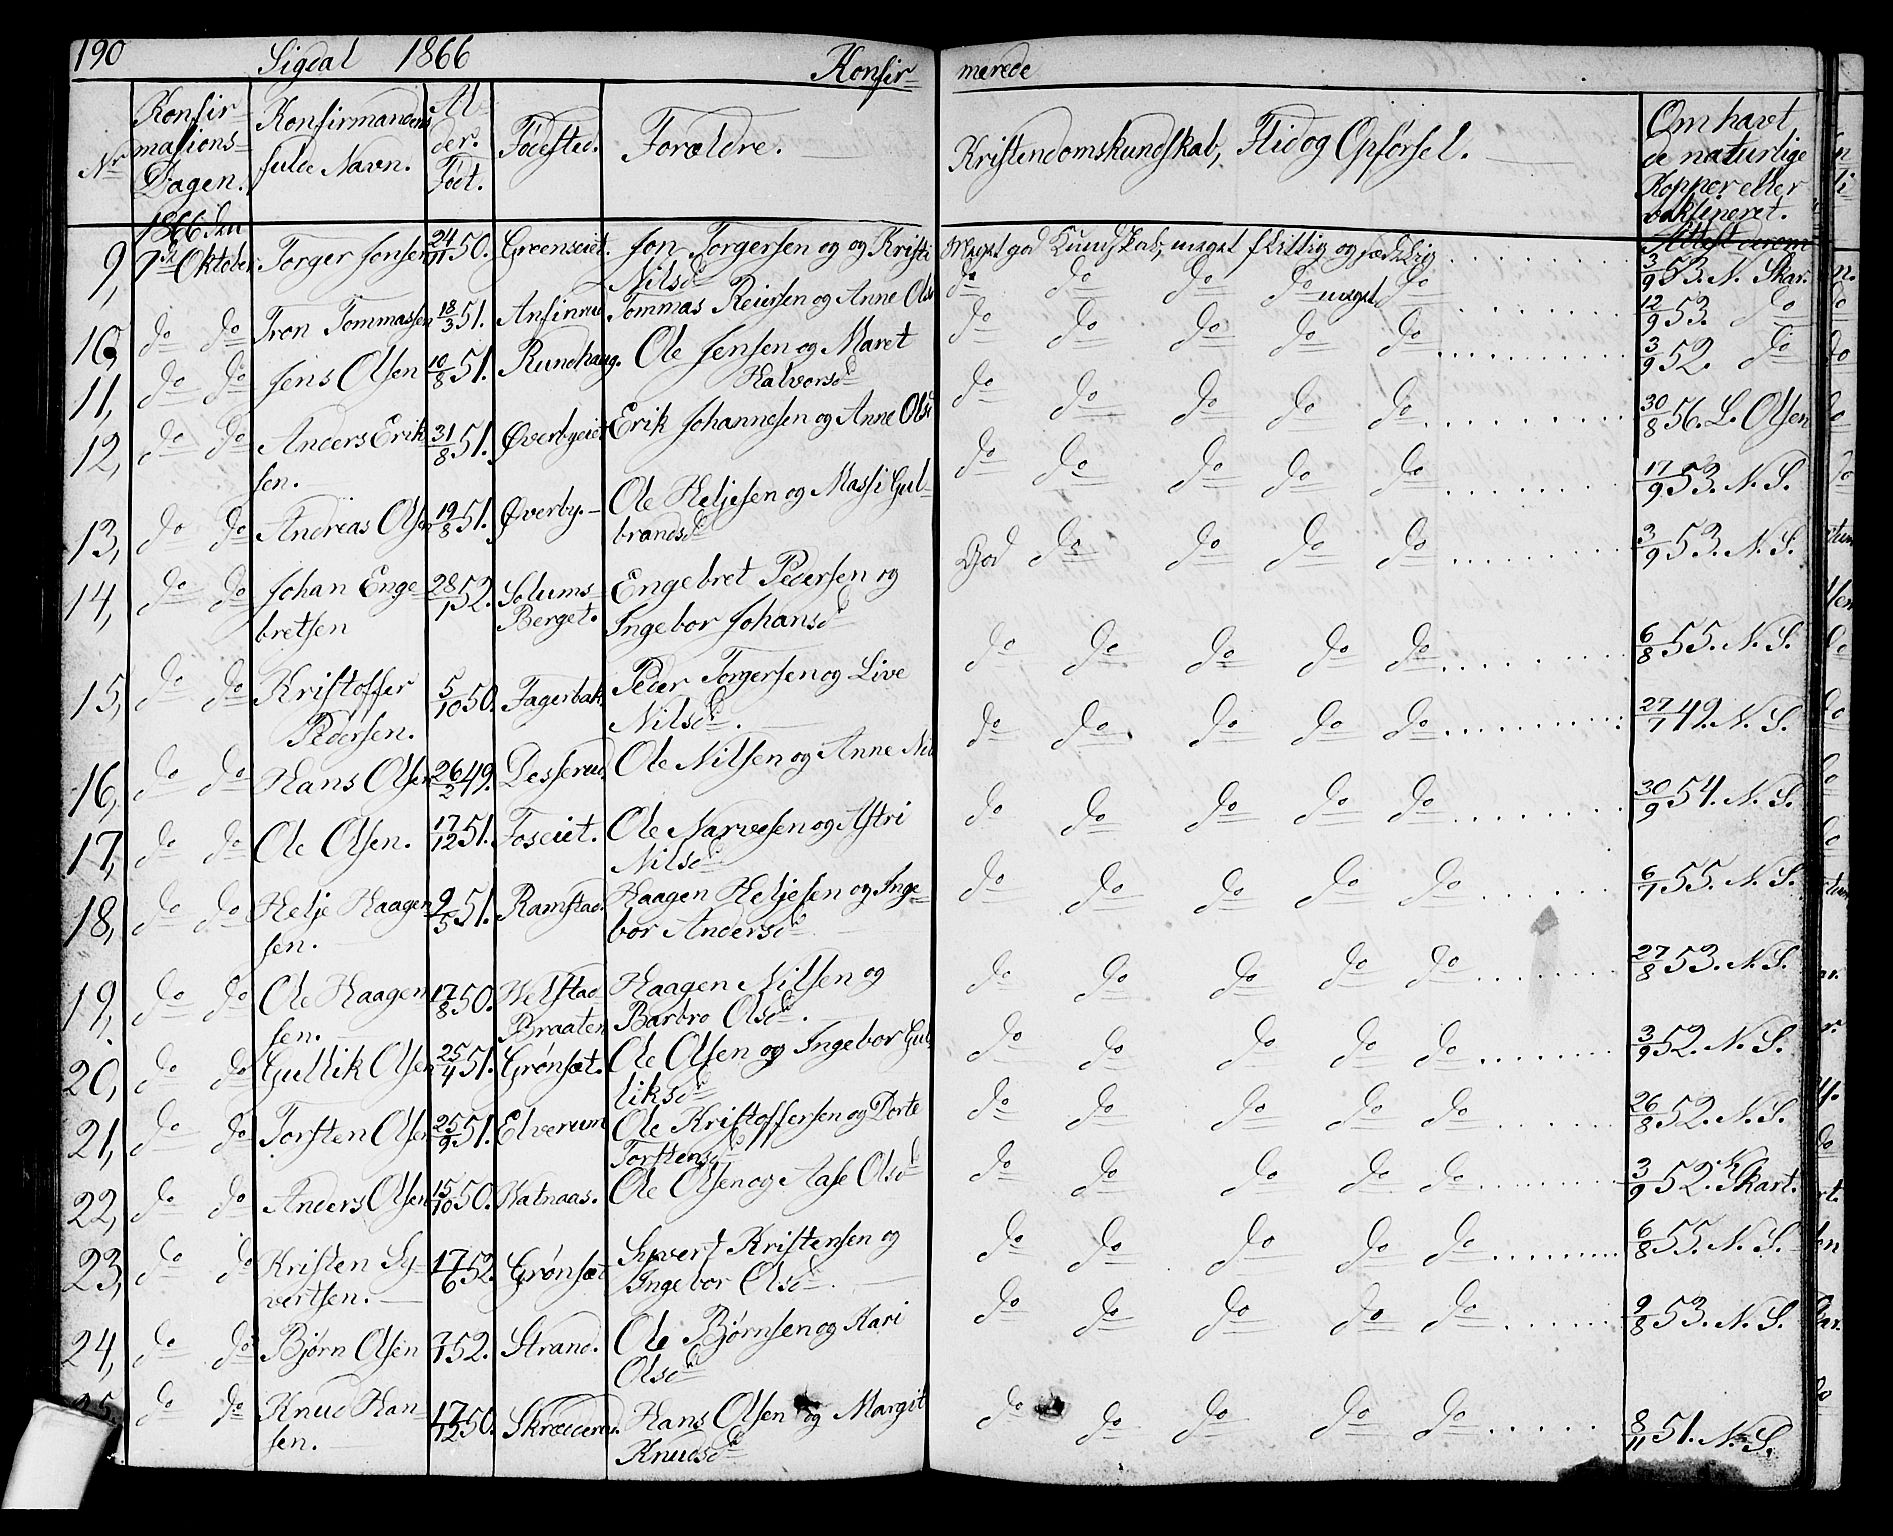 190 Sigdal 1866 Konfir- merede
Nr Konfir-mations-Dagen. Konfirmandens fulde Navn. Al-der. Født. Fødested. Forældre. Kristendomskundskab, Flid og Opførsel. Om havt de naturlige Kopper eller vaksineret. Attest derom
1866 den
9, 7de Oktober. Torger Jonsen 24/11 50. Groenseiet. Jon Torgersen og og Kristi Meget god Kundskab, meget flittig og sædelig 3/9 53. N. Skar.
Nilsd.
10, do do Tron Tommassen 18/3 51. Ansinrud Tommas Reiersen og Anne Olsd do do do do meget do 12/9 53. do
11, do do Jens Olsen 10/8 51. Rundhaug. Ole Jensen og Maret do do do do do 3/9 52. do
Halvorsd
12, do do Anders Erik- 31/8 51. Øverbyeiet Erik Johannesen og Anne Olsd do do do do do 30/8 56. L. Olsen
sen.
13, do do Andreas Olsen 19/8 51. Øverby. Ole Heljesen og Massi Gul- do do do do do 17/9 53. N. S.
brandsd
14, do do Johan Enge- 28/1 52. Solums- Engebret Pedersen og God do do do do 3/9 53. N. S.
bretsen Berget. Ingebor Johansd
15, do do Kristoffer 5/10 50. Fagerbak. Peder Torgersen og Live do do do do do 6/8 55. N. S.
Pedersen. Nilsd.
16, do do Hans Olsen 26/2 49. Desserud. Ole Nilsen og Anne Nil do do do do do 27/7 49. N. S.
17, do do Ole Olsen. 17/12 51. Foseiet. Ole Narvesen og Astri do do do do do 30/9 54. N. S.
Nilsd
18, do do Helje Haagen 9/5 51. Ramstad. Haagen Heljesen og Inge- do do do do do 6/7 55. N. S.
sen. bor Andersd
19, do do Ole Haagen 17/8 50. Velstad Haagen Nilsen og do do do do do 27/8 53. N. S.
sen. Braaten Barbro Olsd.
20, do do Gullik Olsen 25/4 51. Grønsæt. Ole Olsen og Ingebor Gul- do do do do do 3/9 52. N. S.
liksd
21, do do Torsten Olsen 25/9 51. Elverum Ole Kristoffersen og Dorte do do do do do 26/8 52. N. S.
Torstensd
22, do do Anders Olsen 15/10 50. Hatnaas. Ole Olsen og Aase Olsd do do do do do 3/9 52. N. Skart.
23, do do Kristen Sy- 17/6 52. Grønsæt Syvert Kristensen og do do do do do 6/8 55. N. S.
vertsen. Ingebor Olsd
24, do do Bjørn Olsen 52. Strand. Ole Bjørnsen og Kari do do do do do 9/8 53. N. S.
Olsd
25. do do Knud Han- 17/12 50. Skrædderud. Hans Olsen og Margit do do do do do 8/11 51. N. S.
sen. Knudsd